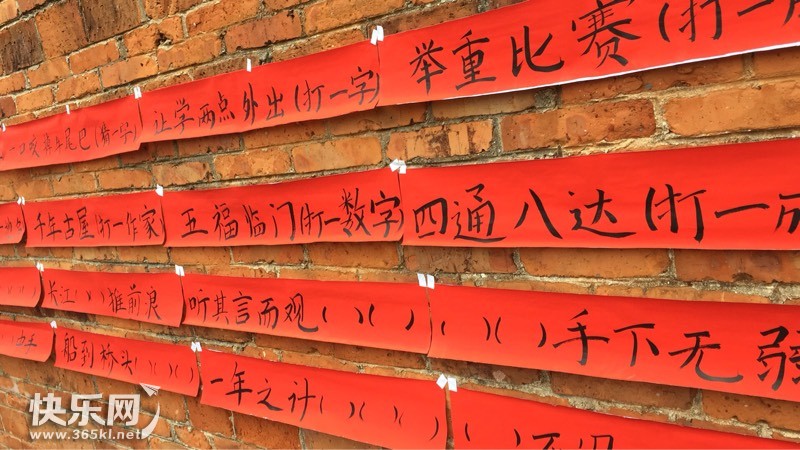 一口咬掉牛尾巴(打一字)
让学两点外出(打一字)
举重比赛(打一
千年古屋(打一作家
五福临门(打一数字)
四通八达(打一成
长江( )( )推前浪
听其言而观( )( )
( )( )手下无弱
船到桥头( )( )( )
一年之计( )( )( )
快乐网
www.365kl.net